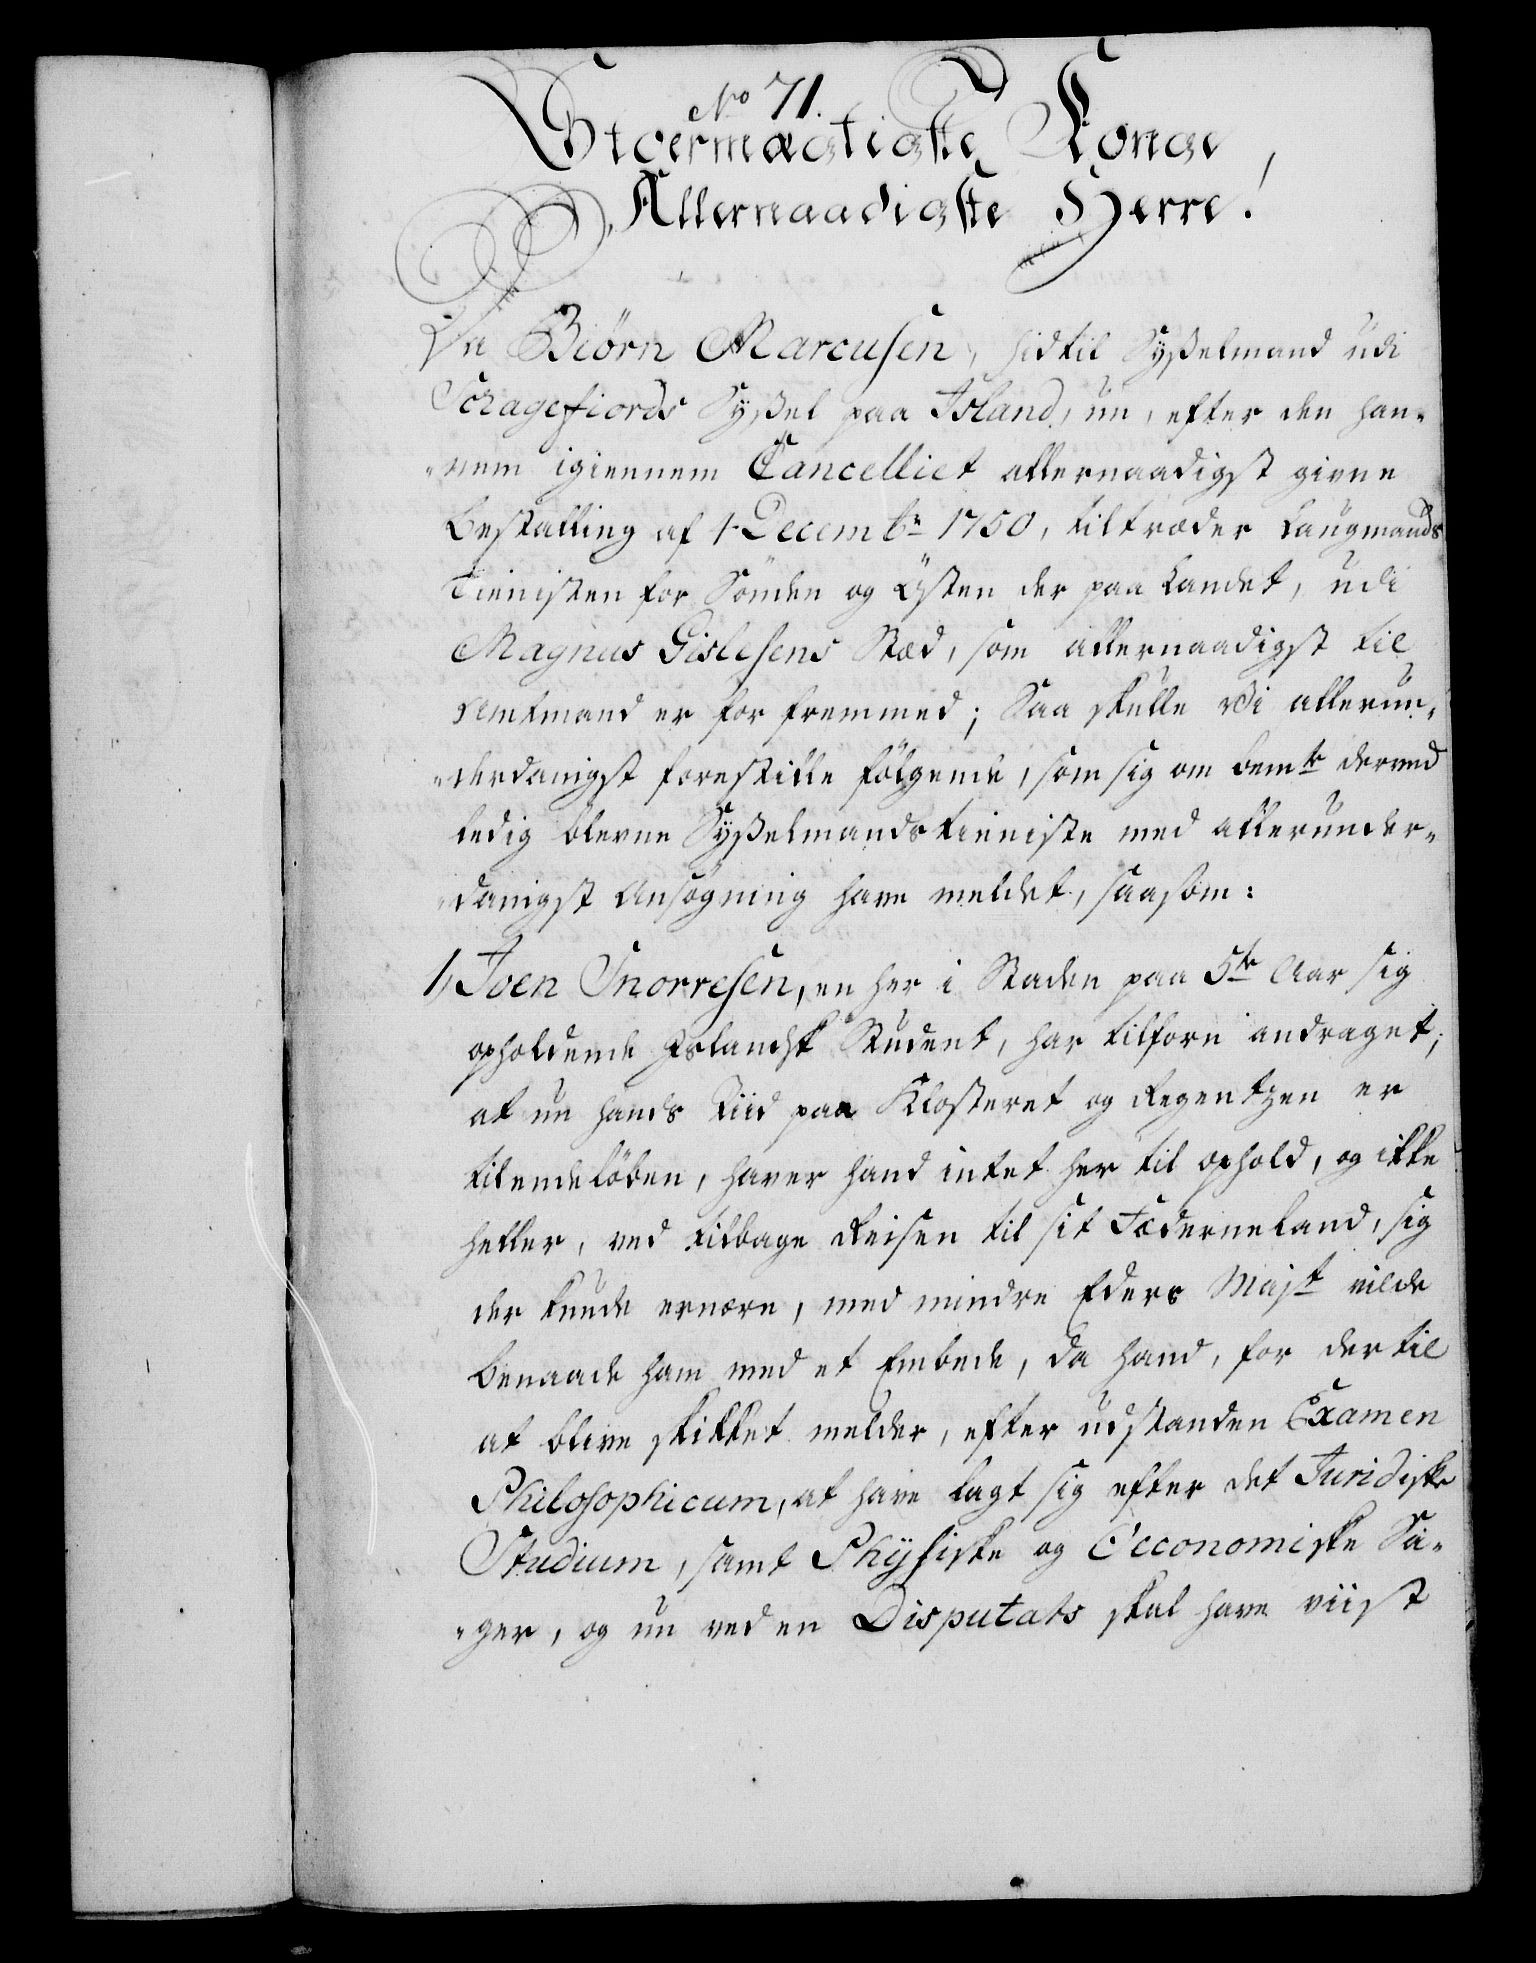 No 71.
Stoermægtigste Konge,
Allernaadigste Herre!
Da Biörn Marcusen, hidtil Sysselmand udi
Schagefiords Syssel paa Island, nu, efter den han-
-nem igiennem Cancelliet allernaadigst givne
Bestalling af 1 Decembr 1750, tiltræder Laugmands
Tienisten for Sönden og Östen der paa Landet, udi
Magnus Gislesens Stæd, som allernaadigst til
Amtmand er forfremmed; Saa skulle Vi allerun-
-derdanigst forestille fölgende, som sig om bemte derved
ledig blevne Sysselmandstieniste med allerunder-
-danigst Ansögning have meldet, saasom:
1, Joen Snorresen, en her i Staden paa 5te Aar sig
opholdende Islandsk Student, har tilforn andraget;
at nu hands Tiid paa Klosteret og Regentzen er
tilendelöben, haver hand intet her til ophold, og ikke
heller, ved tilbage Reisen til sit Fæderneland, sig
der kunde ernære, med mindre Eders Majt vilde
benaade ham med et Embede, da hand, for dertil
at blive skikket melder, efter udstanden Examen
Philosophicum, at have lagt sig efter det Juridiske
Studium, samt Physiske og Oeconomiske Sa-
-ger, og nu ved en Disputats skal have viist